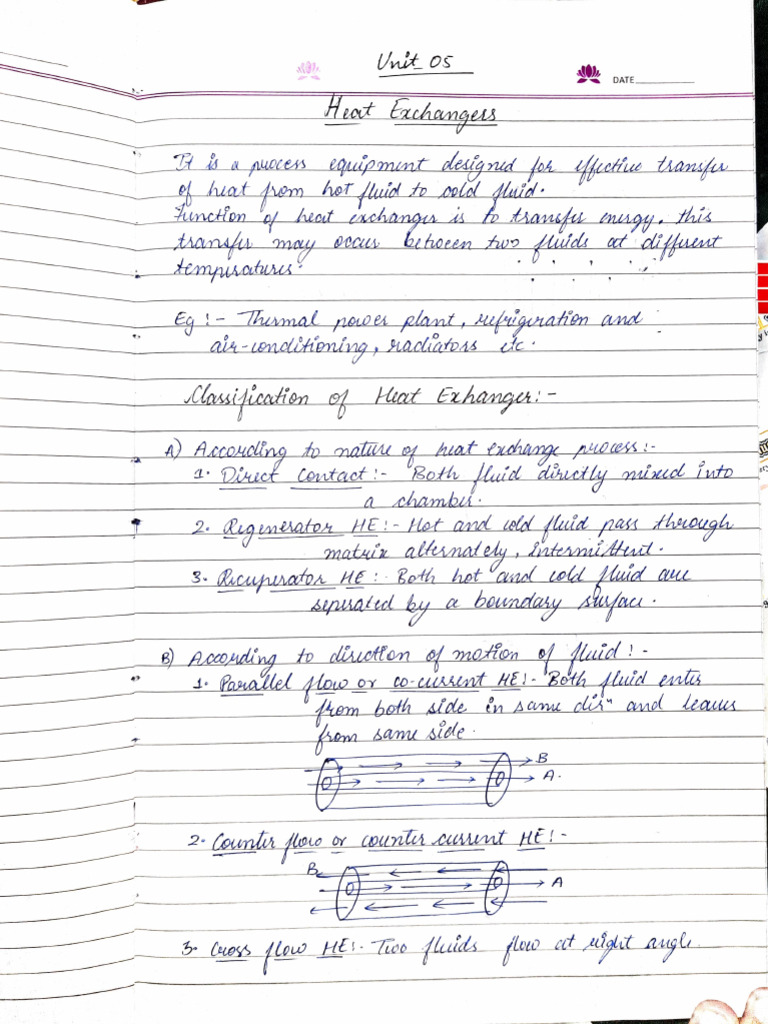 Unit_05
DATE
Heat Exchangers
It is a process equipment designed for effective transfer
of heat from hot fluid to cold fluid.
Function of heat exchanger is to transfer energy. this
transfer may occur between two fluids at different
temperatures.
Eg :- Thermal power plant, refrigeration and
air-conditioning, radiators etc.
Classification of Heat Exhanger:-
A) According to nature of heat exchange process:-
1. Direct Contact:- Both fluid directly mixed into
a chamber.
2. Regenerator HE:- Hot and cold fluid pass through
matrix alternately, Intermittent.
3. Recuperator HE:- Both hot and cold fluid are
seperated by a boundary surface.
B) According to direction of motion of fluid :-
1. Parallel flow or co-current HE:- Both fluid enter
from both side in same dirⁿ and leaves
from same side.
B
A.
2. Counter flow or counter current HE:-
B
A
3. Cross flow HE:- Two fluids flow at right angle.